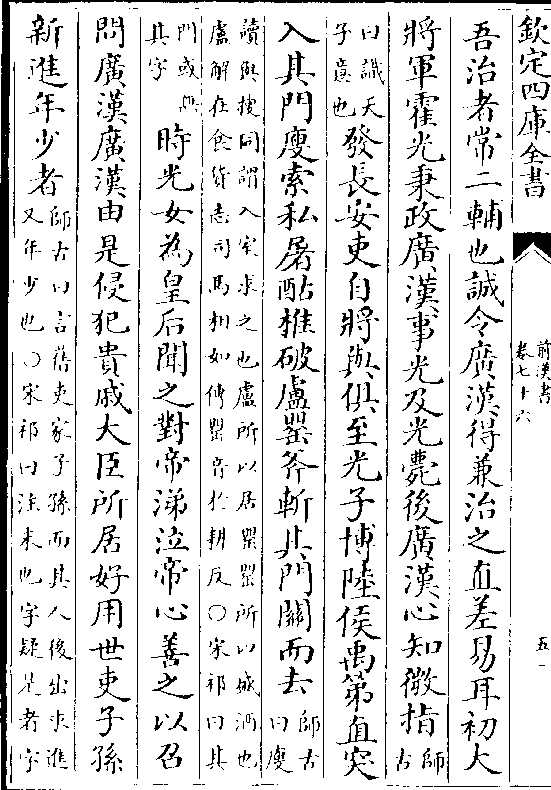 欽定四庫全書
前漢書
卷七十六
五
吾治者常二輔也誠令廣漢得兼治之直差易耳初大
將軍霍光秉政廣漢事光及光薨後廣漢心知微指師古
曰識天子意也發長安吏自將與俱至光子博陸侯禹第直突
入其門廋索私屠酤椎破盧罌斧斬其門關而去師古曰廋
讀與搜同謂入室求之也盧所以居罌罌所以盛酒也盧解在食貨志司馬相如傳罌音於耕反○宋祁曰其
門或無其字時光女為皇后聞之對帝涕泣帝心善之以召
問廣漢廣漢由是侵犯貴戚大臣所居好用世吏子孫
新進年少者師古曰言舊吏家子孫而其人後出求進又年少也○宋祁曰注末也字疑是者字